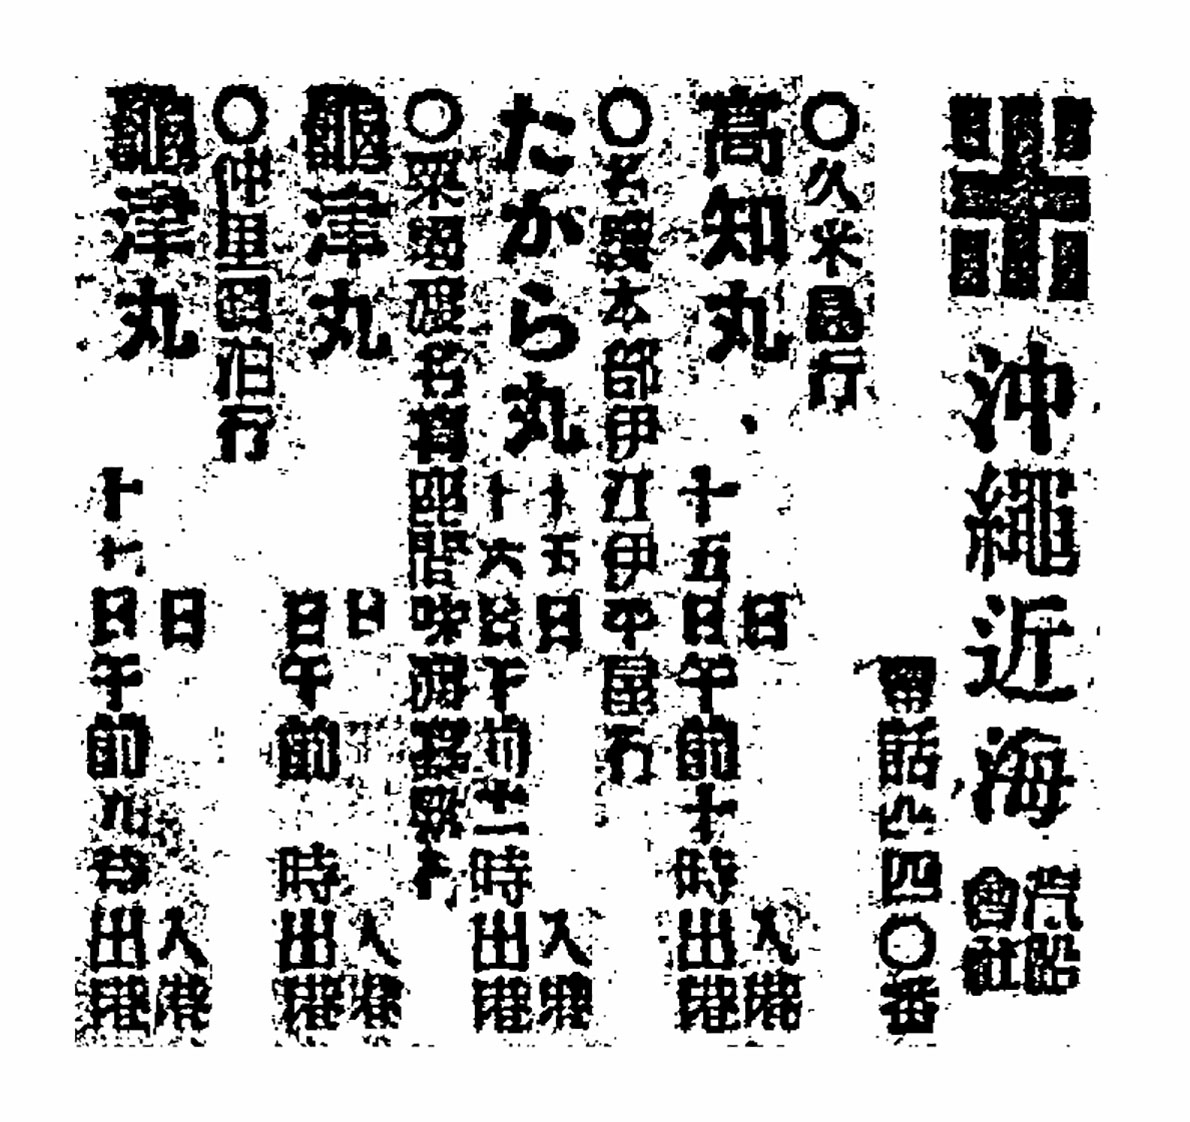 沖繩近海汽船會社
電話 四〇番
〇久米島行
高知丸 日入港
十五日午前十時出港
〇名護本部伊江伊平屋行
たがら丸 十五日入港
十六 午前十二時出港
〇粟國渡名喜座間味渡嘉敷行
龜津丸 日 入港
日午前 時出港
〇仲里 行
龜津丸 日入港
十七日午前九時出港